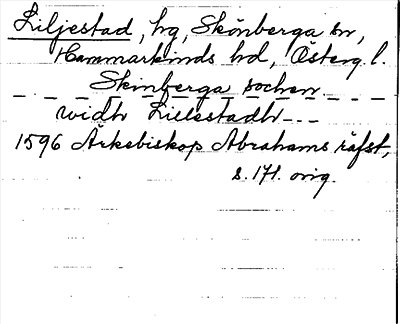 Liljestad, hg, Skönberga sn,
Hammarkinds hd, Österg. l.
Skinberga sochen
widh Lillestadh ---
1596 Ärkebiskop Abrahams räfst,
s. 171. orig.